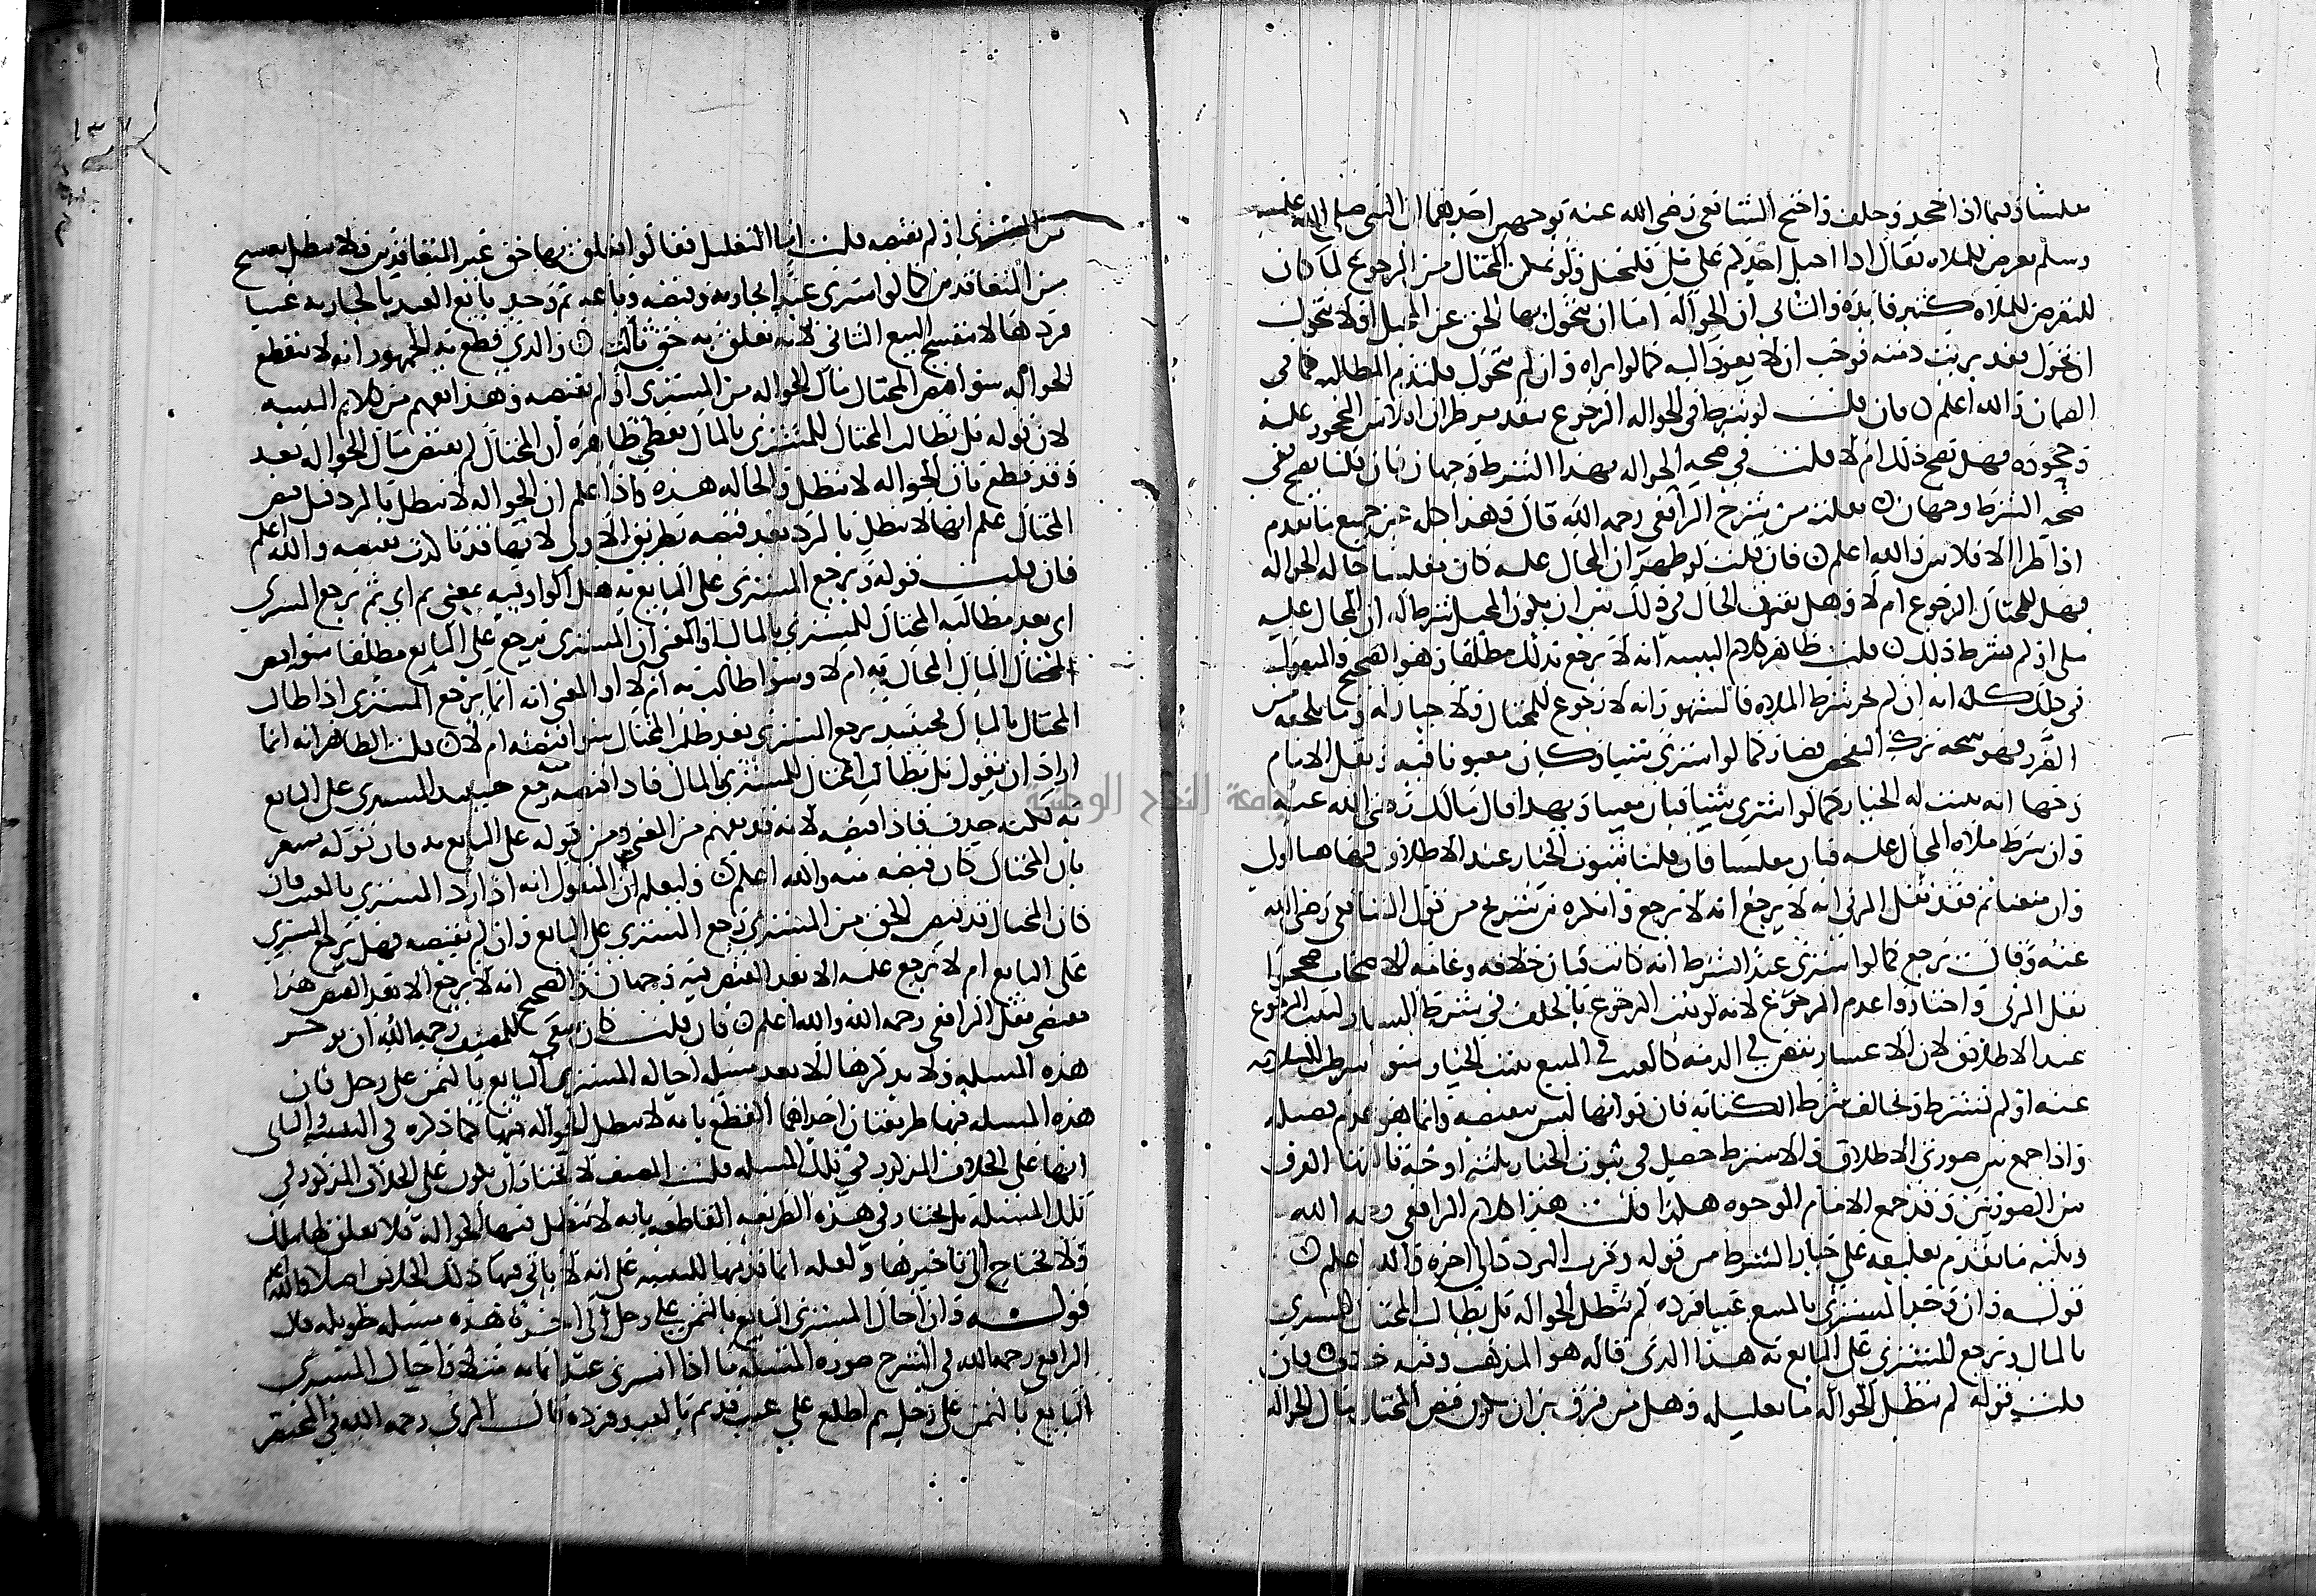 مفلسا وفيما اذا جحد وحلف واحتج الشافعي رضي الله عنه بوجهين احدهما ان النبي صلى الله عليه
وسلم تعرض للملاه فقال اذا احيل احدكم على ملي فليحتل ولو تمكن المحتال من الرجوع لما كان
للتعرض للملاه كثير فايدة والثاني ان الحوالة اما ان يتحول بها الحق عن المحيل اولا يتحول
ان تحول فقد برئت ذمته فوجب ان لا يعود اليه كما لو ابراه وان لم يتحول فلتدم المطالبه كما في
الضمان والله اعلم فان قلت لو شرط في الحواله الرجوع بتقدير طران افلاس المحجور عليه
وجحوده فهل يصح ذلك ام لا قلت في صحة الحواله بهذا الشرط وجهان فان قلنا يصح ففي
صحة الشرط وجهان نقلته من شرح الرافعي رحمه الله قال وهذا كله في جميع ما تقدم
اذا طرا الافلاس والله اعلم فان قلت لو ظهر ان المحال عليه كان مفلسا حاله الحواله
فهل للمحتال الرجوع ام لا وهل يفترق الحال في ذلك بين ان يكون المحيل شرط له ان المحال عليه
ملي او لم يشرط ذلك قلت ظاهر كلام التنبيه انه لا يرجع بذلك مطلقا وهو الصحيح والمنقول
في ذلك كله انه ان لم يجر شرط الملاه فالمشهور انه لا رجوع للمحتال ولا خيار له وما يلحقه من
الضرر فهو نتيجة تركه الفحص فصار كما لو اشترى شيا وكان مغبونا فيه ونقل الامام
وجها انه يثبت له الخيار كما لو اشترى شيا فبان معيبا وبهذا قال مالك رضي الله عنه
وان شرط ملاه المحال عليه فبان مفلسا فان قلنا بثبوت الخيار عند الاطلاق فهاهنا اولى
وان منعنا ثم فقد نقل المزني انه لا يرجع وانكره بن سريج من قول الشافعي رضي الله
عنه وقال يرجع كما لو اشترى عبدا بشرط انه كاتب فبان خلافه وعامه الاصحاب صححوا
نقل المزني واختاروا عدم الرجوع لانه لو ثبت الرجوع بالخلف في شرط اليسار لثبت الرجوع
عند الاطلاق لان الاعسار نقص في الذمه كالعيب في المبيع يثبت الخيار سوا شرط السلامه
عنه او لم يشترط ويخالف شرط الكتابه فان فواتها ليس بنقص وانما هو عدم فضيله
واذا جمع بين صورتي الاطلاق والاشتراط حصل في ثبوت الخيار ثلثة اوجه ثالثها الفرق
بين الصورتين وقد جمع الامام الوجوه هكذا قلت هذا كلام الرافعي رحمه الله
قوله وان وجد المشتري بالمبيع عيبا فرده لم تبطل الحواله بل يطالب المحتال المشتري
بالمال ويرجع المشتري على البايع به هذا الذي قاله هو المذهب وفيه خلاف فان
قلت قوله لم تبطل الحوالة ما تعليله وهل من فرق بين ان يكون قبض المحتال مال الحواله
من المشتري او لم يقبضه قلت اما التعليل فقالوا تعلق بها حق غير المتعاقدين فلا تبطل بفسخ
من المتعاقدين كما لو اشترى عبدا بجاريه وقبضه وباعه ثم وجد بايع العبد بالجاريه عيبا
فردها لا ينفسخ البيع الثاني لانه تعلق به حق ثالث والذي قطع به الجمهور انه لا ينقطع
الحواله سوا قبض المحتال مال الحواله من المشتري او لم يقبضه وهذا يفهم من كلام التنبيه
لان قوله بل يطالب المحتال المشتري بالمال يعطي ظاهره ان المحتال لم يقبض مال الحواله بعد
وقد قطع بان الحواله لا تبطل والحاله هذه واذا علم ان الحواله لا تبطل بالرد قبل قبض
المحتال علم انها لا تبطل بالرد بعد قبضه بطريق الاولى والله اعلم
فان قلت قوله ويرجع المشتري على البايع به هل الواو فيه بمعنى ثم اي ثم يرجع المشتري
اي بعد مطالبه المحتال للمشتري بالمال او المعنى ان المشتري يرجع على البايع مطلقا سوا قبض
المحتال المال المحال به ام لا وسوا طالب به ام لا او المعنى انه انما يرجع المشتري اذا طالب
المحتال بالمال فحينئذ يرجع المشتري بعد طلب المحتال سوا قبضه ام لا قلت الظاهر انه انما
اراد ان يقول بل يطالب المحتال المشتري بالمال فاذا قبضه منه رجع حينئذ المشتري على البايع
به لكنه حذف فاذا قبضه لانه قد يفهم من المعنى ومن قوله على البايع به فان قوله يشعر
بان المحتال كان قبضه منه والله اعلم وليعلم ان المنقول انه اذا رد المشتري بالعيب فان
كان المحتال قد قبض الحق من المشتري رجع المشتري على البايع وان لم يقبضه فهل يرجع المشتري
على البايع ام لا يرجع عليه الا بعد القبض فيه وجهان الصحيح انه لا يرجع الا بعد القبض هذا
مقتضى نقل الرافعي رحمه الله والله اعلم فان قلت كان ينبغي للمصنف رحمه الله ان يوخر
هذه المسله ولا يذكرها الا بعد مسله احاله المشتري البايع بالثمن على رجل فان
هذه المسله فيها طريقتان احداهما القطع بانه لا تبطل الحواله فيها كما ذكره في التنبيه والثاني
انها على الخلاف المذكور في تلك المسله قلت المصنف لا يختار ان يكون على الخلاف المذكور في
تلك المسئلة بل يختار في هذه الطريقه القاطعه بانه لا تبطل فيها الحوالة فلا تعلق لها بتلك
ولا يحتاج الى تاخيرها ولعله انما قدمها للتنبيه على انه لا ياتي فيها ذلك الخلاف اصلا والله اعلم
قوله وان احال المشتري البايع بالثمن على رجل الى اخره هذه مسله طويله قال
الرافعي رحمه الله في الشرح صورة المسئلة ما اذا اشترى عبدا بمايه مثلا واحال المشتري
البايع بالثمن على رجل ثم اطلع على عيب قديم بالعبد فرده قال المزني رحمه الله في المختصر
جامعة النجاح الوطنية